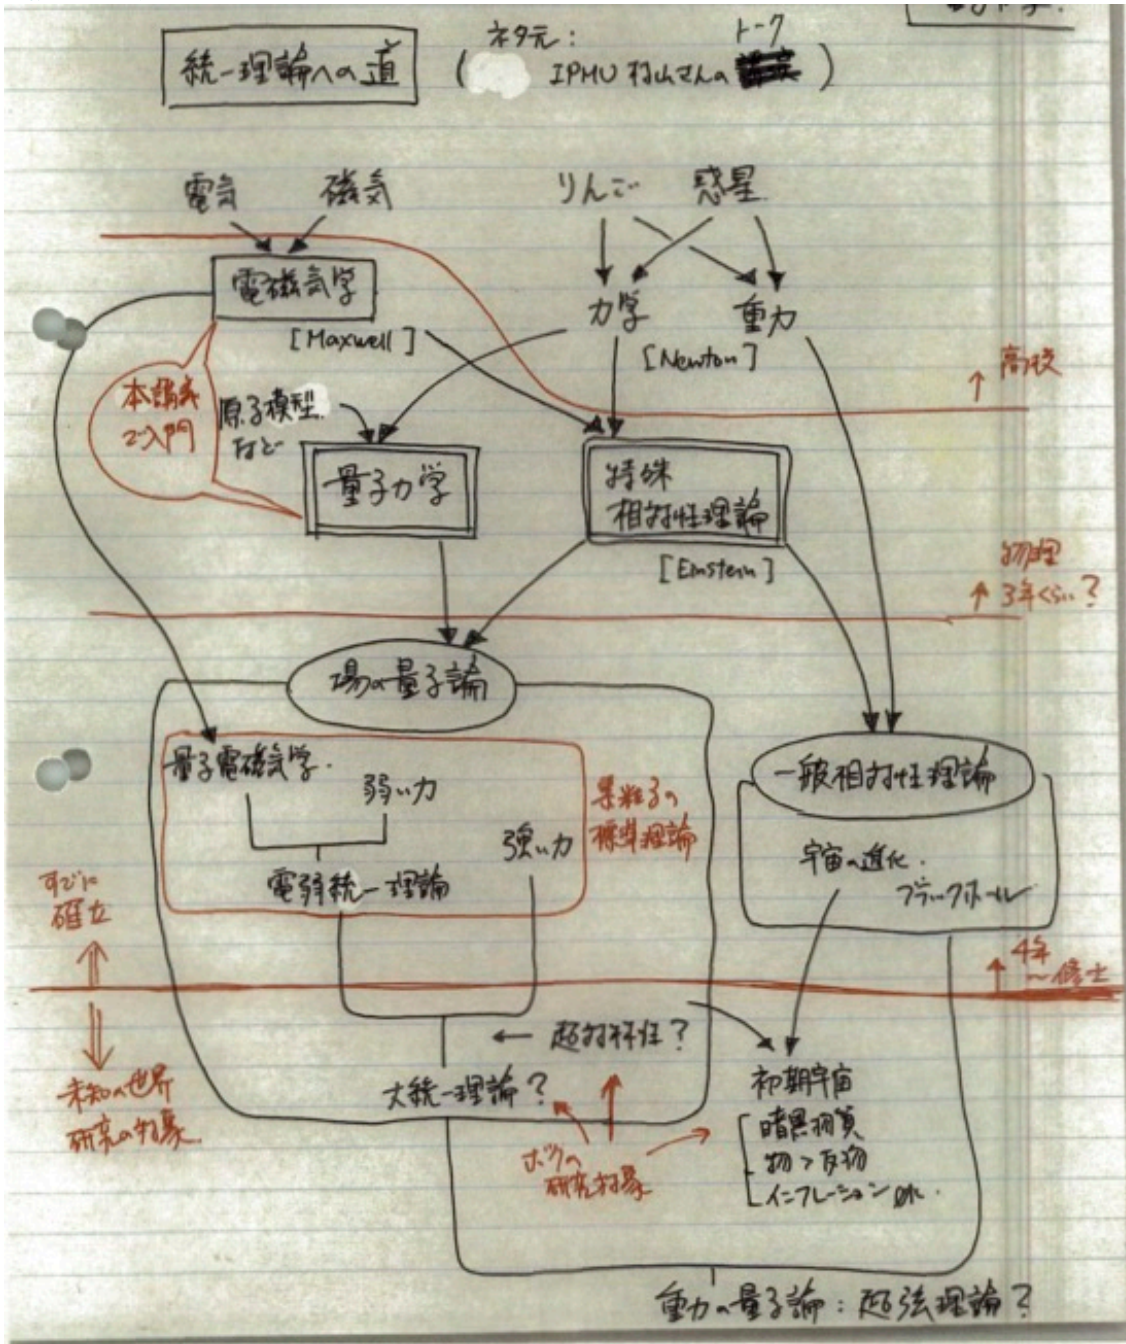 統一理論への道
(ネタ元: IPMU 村山さんの トーク)
電気 磁気 りんご 惑星
電磁気学
[Maxwell]
力学 重力
[Newton]
↑ 高校
本講義
で入門
原子模型
など
量子力学
特殊
相対性理論
[Einstein]
↑ 物理
3年くらい?
場の量子論
量子電磁気学
弱い力
強い力
電弱統一理論
素粒子の
標準理論
一般相対性理論
宇宙の進化
ブラックホール
すでに
確立
↑ 4年
〜修士
未知の世界
研究の対象
← 超対称性?
大統一理論?
ボクの
研究対象
初期宇宙
暗黒物質
物>反物
インフレーション etc.
重力の量子論:超弦理論?